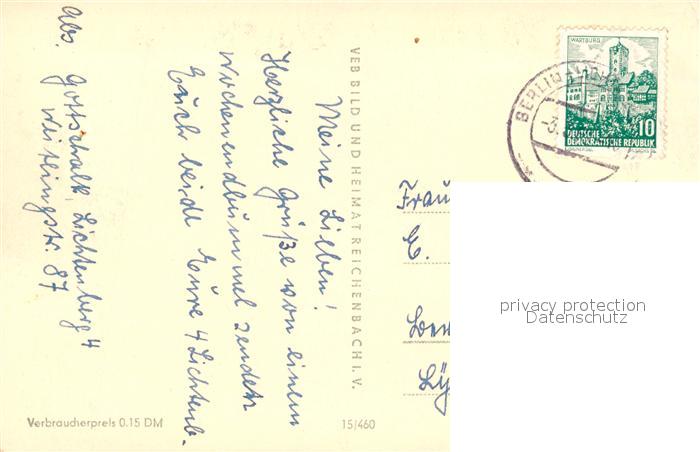 Abs. Gottschalk, Lichtenberg 4
Wirtlingstr. 87
Meine Lieben!
Herzliche Grüße von einem
Wochenendbummel senden
Euch beide Eure 4 Lichtenb.
VEB BILD UND HEIMAT REICHENBACH I. V.
WARTBURG
10
DEUTSCHE
DEMOKRATISCHE REPUBLIK
BERLIN
-3.
Frau
E.
privacy protection
Datenschutz
Verbraucherpreis 0.15 DM
15/460